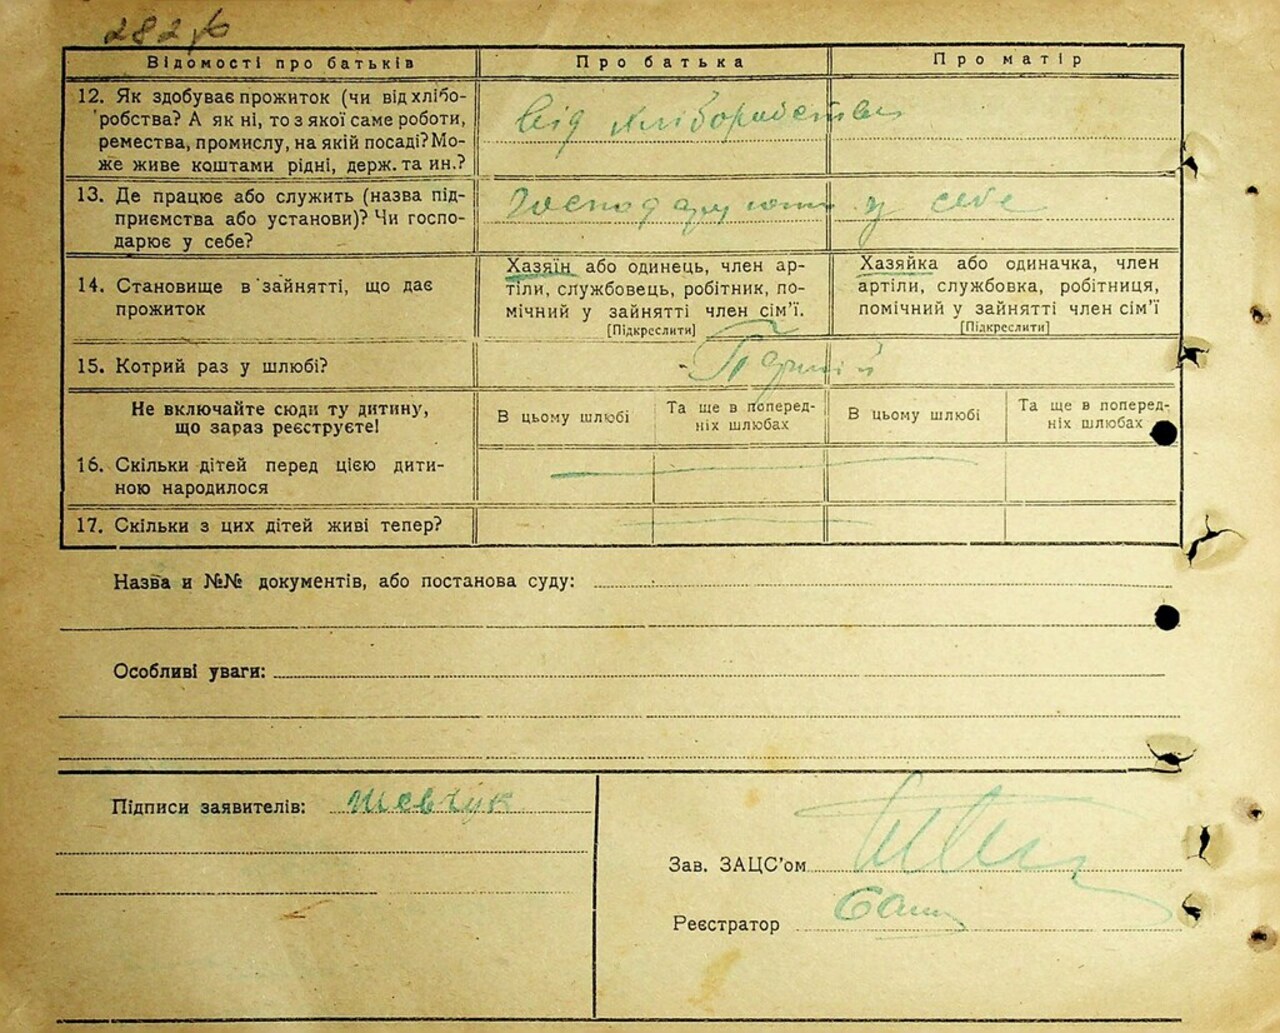 282
Відомості про батьків
Про батька
Про матір
12. Як здобуває прожиток (чи від хлібо-
робства? А як ні, то з якої саме роботи,
ремества, промислу, на якій посаді? Мо-
же живе коштами рідні, держ. та ин.?
від хліборобства
13. Де працює або служить (назва під-
приємства або установи)? Чи госпо-
дарює у себе?
Господарюють у себе
14. Становище в зайнятті, що дає
прожиток
Хазяїн або одинець, член ар-
тіли, службовець, робітник, по-
мічний у зайнятті член сім'ї.
[Підкреслити]
Хазяйка або одиначка, член
артіли, службовка, робітниця,
помічний у зайнятті член сім'ї
[Підкреслити]
15. Котрий раз у шлюбі?
Не включайте сюди ту дитину,
що зараз реєструєте!
В цьому шлюбі
Та ще в поперед-
ніх шлюбах
В цьому шлюбі
Та ще в поперед-
ніх шлюбах
16. Скільки дітей перед цією дити-
ною народилося
17. Скільки з цих дітей живі тепер?
Назва и №№ документів, або постанова суду:
Особливі уваги:
Підписи заявителів: Шевчук
Зав. ЗАЦС'ом
Реєстратор